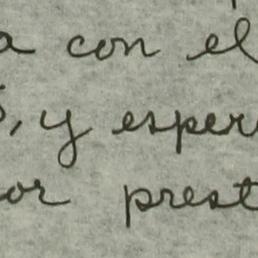 a con el
, y esper
or prest